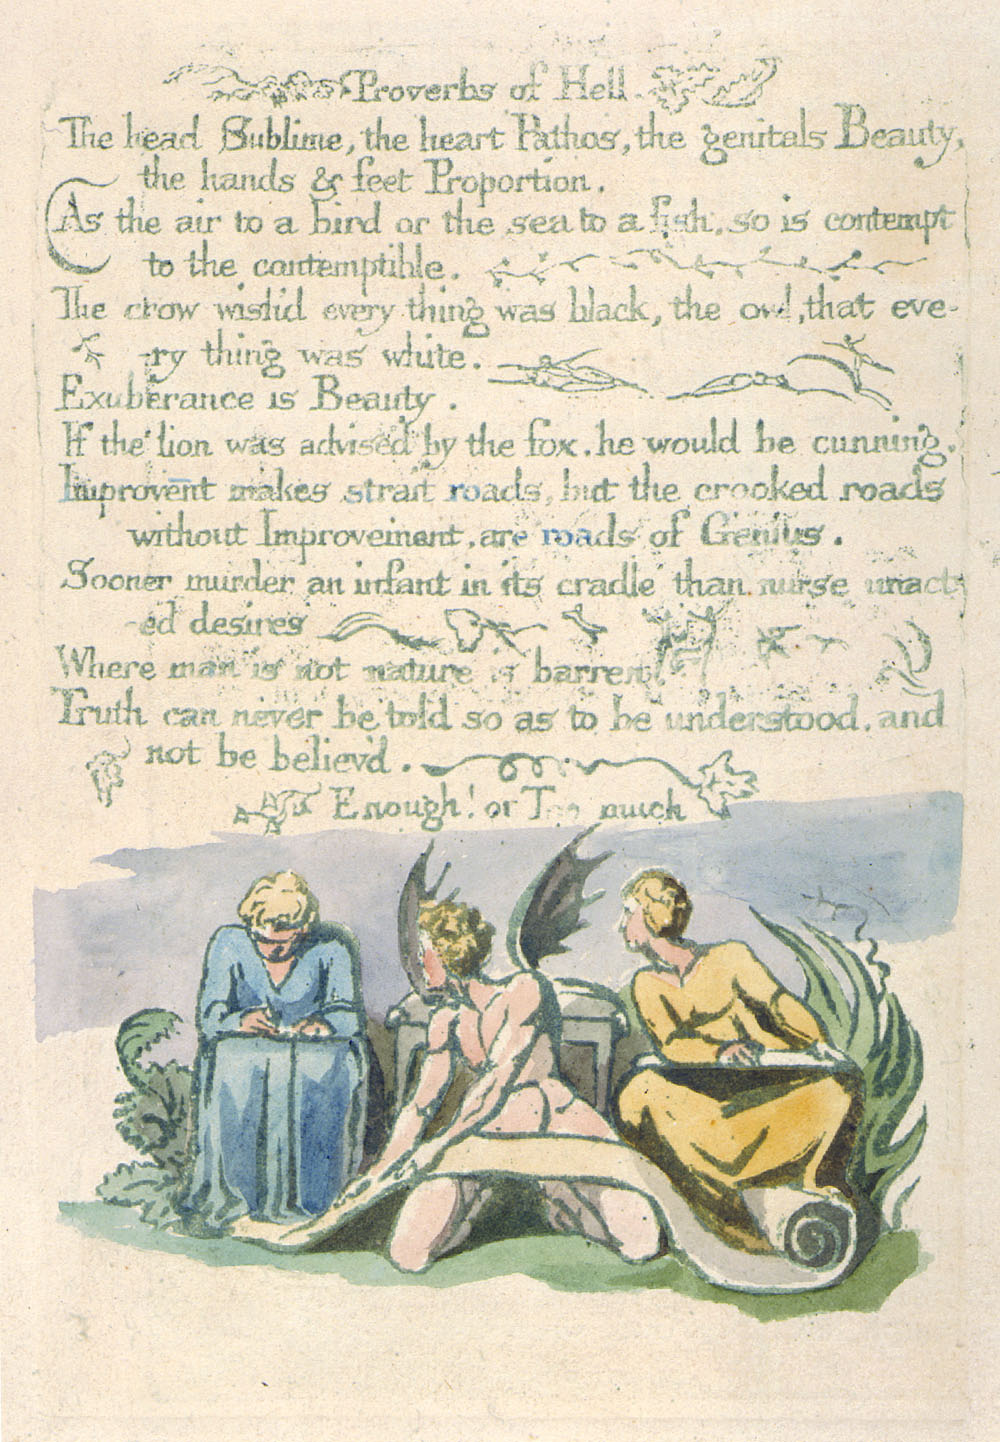 Proverbs of Hell
The head Sublime, the heart Pathos, the genitals Beauty,
the hands & feet Proportion.
As the air to a bird or the sea to a fish, so is contempt
to the contemptible.
The crow wish'd every thing was black, the owl, that eve-
-ry thing was white.
Exuberance is Beauty.
If the lion was advised by the fox. he would be cunning.
Improvēnt makes strait roads, but the crooked roads
without Improvement, are roads of Genius.
Sooner murder an infant in its cradle than nurse unact-
-ed desires
Where man is not nature is barren.
Truth can never be told so as to be understood. and
not be believ'd.
Enough! or Too much